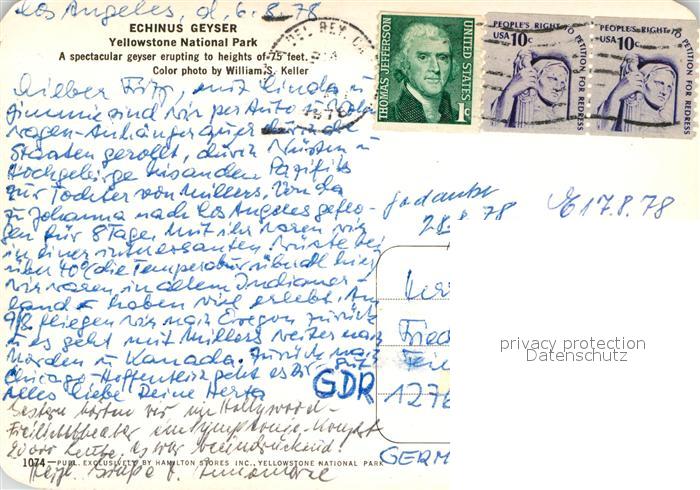 Los Angeles, d. 6.8.78
ECHINUS GEYSER
Yellowstone National Park
A spectacular geyser erupting to heights of 75 feet.
Color photo by William S. Keller
THOMAS JEFFERSON
UNITED STATES
1c
PEOPLE'S RIGHT TO PETITION FOR REDRESS
USA 10c
PEOPLE'S RIGHT TO PETITION FOR REDRESS
USA 10c
Lieber Fritz, mit Linda u.
Jimmie sind wir per Auto u.
wagen-Anhänger quer durch die
Staaten gerollt, durch Wüsten u.
Hochgebirge bis an den Pazifik
zur Tochter von Müllers. Von da
zu Johanna nach Los Angeles geflo-
gen für 8 Tage. Mit ihr waren wir
in einer interessanten Wüste bei
über 40°C die Temperatur überall hier
wir waren in altem Indianer-
land - haben viel erlebt. Am
9/8 fliegen wir nach Oregon zurück
u. es geht mit Müllers weiter nach
Norden u. Kanada. Zurück nach
Chicago. Hoffentlich geht es Dir gut
Alles Liebe Deine Herta
Gestern hörten wir im Hollywood-
Freilichttheater ein Symphonie-Konzert
20 000 Leute. es war beeindruckend!
Herzl. Grüße
gedankt
78
E 17.8.78
Herr
Fried
GDR
1276
GERM
1074—PUBL. EXCLUSIVELY BY HAMILTON STORES INC., YELLOWSTONE NATIONAL PARK
privacy protection
Datenschutz